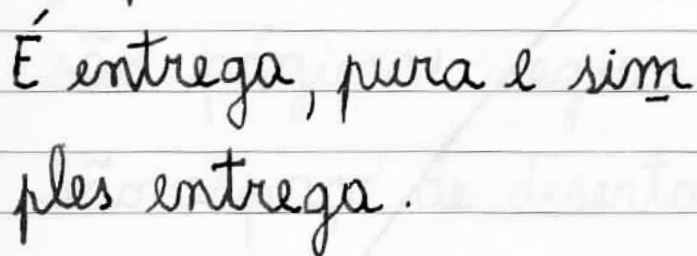 É entrega, pura e sim
ples entrega.